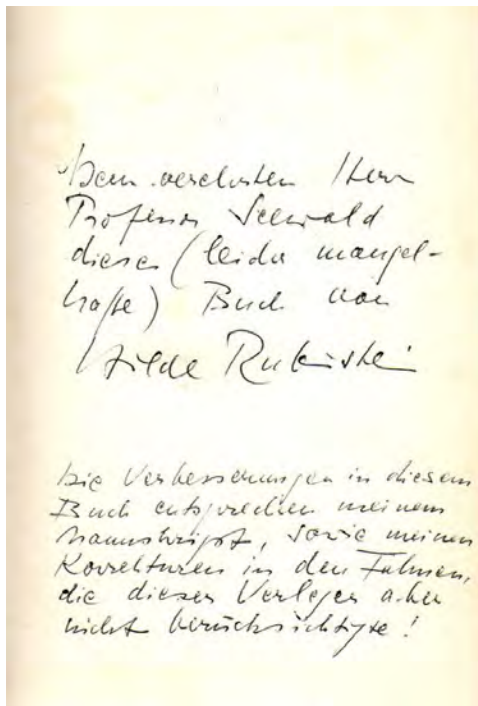 Dem verehrten Herr
Professor Seewald
dieses (leider mangel-
hafte) Buch von
Hilde Rubinstein
Die Verbesserungen in diesem
Buch entsprechen meinem
Manuskript, sowie meinen
Korrekturen in den Fahnen,
die dieser Verleger aber
nicht berücksichtigte!